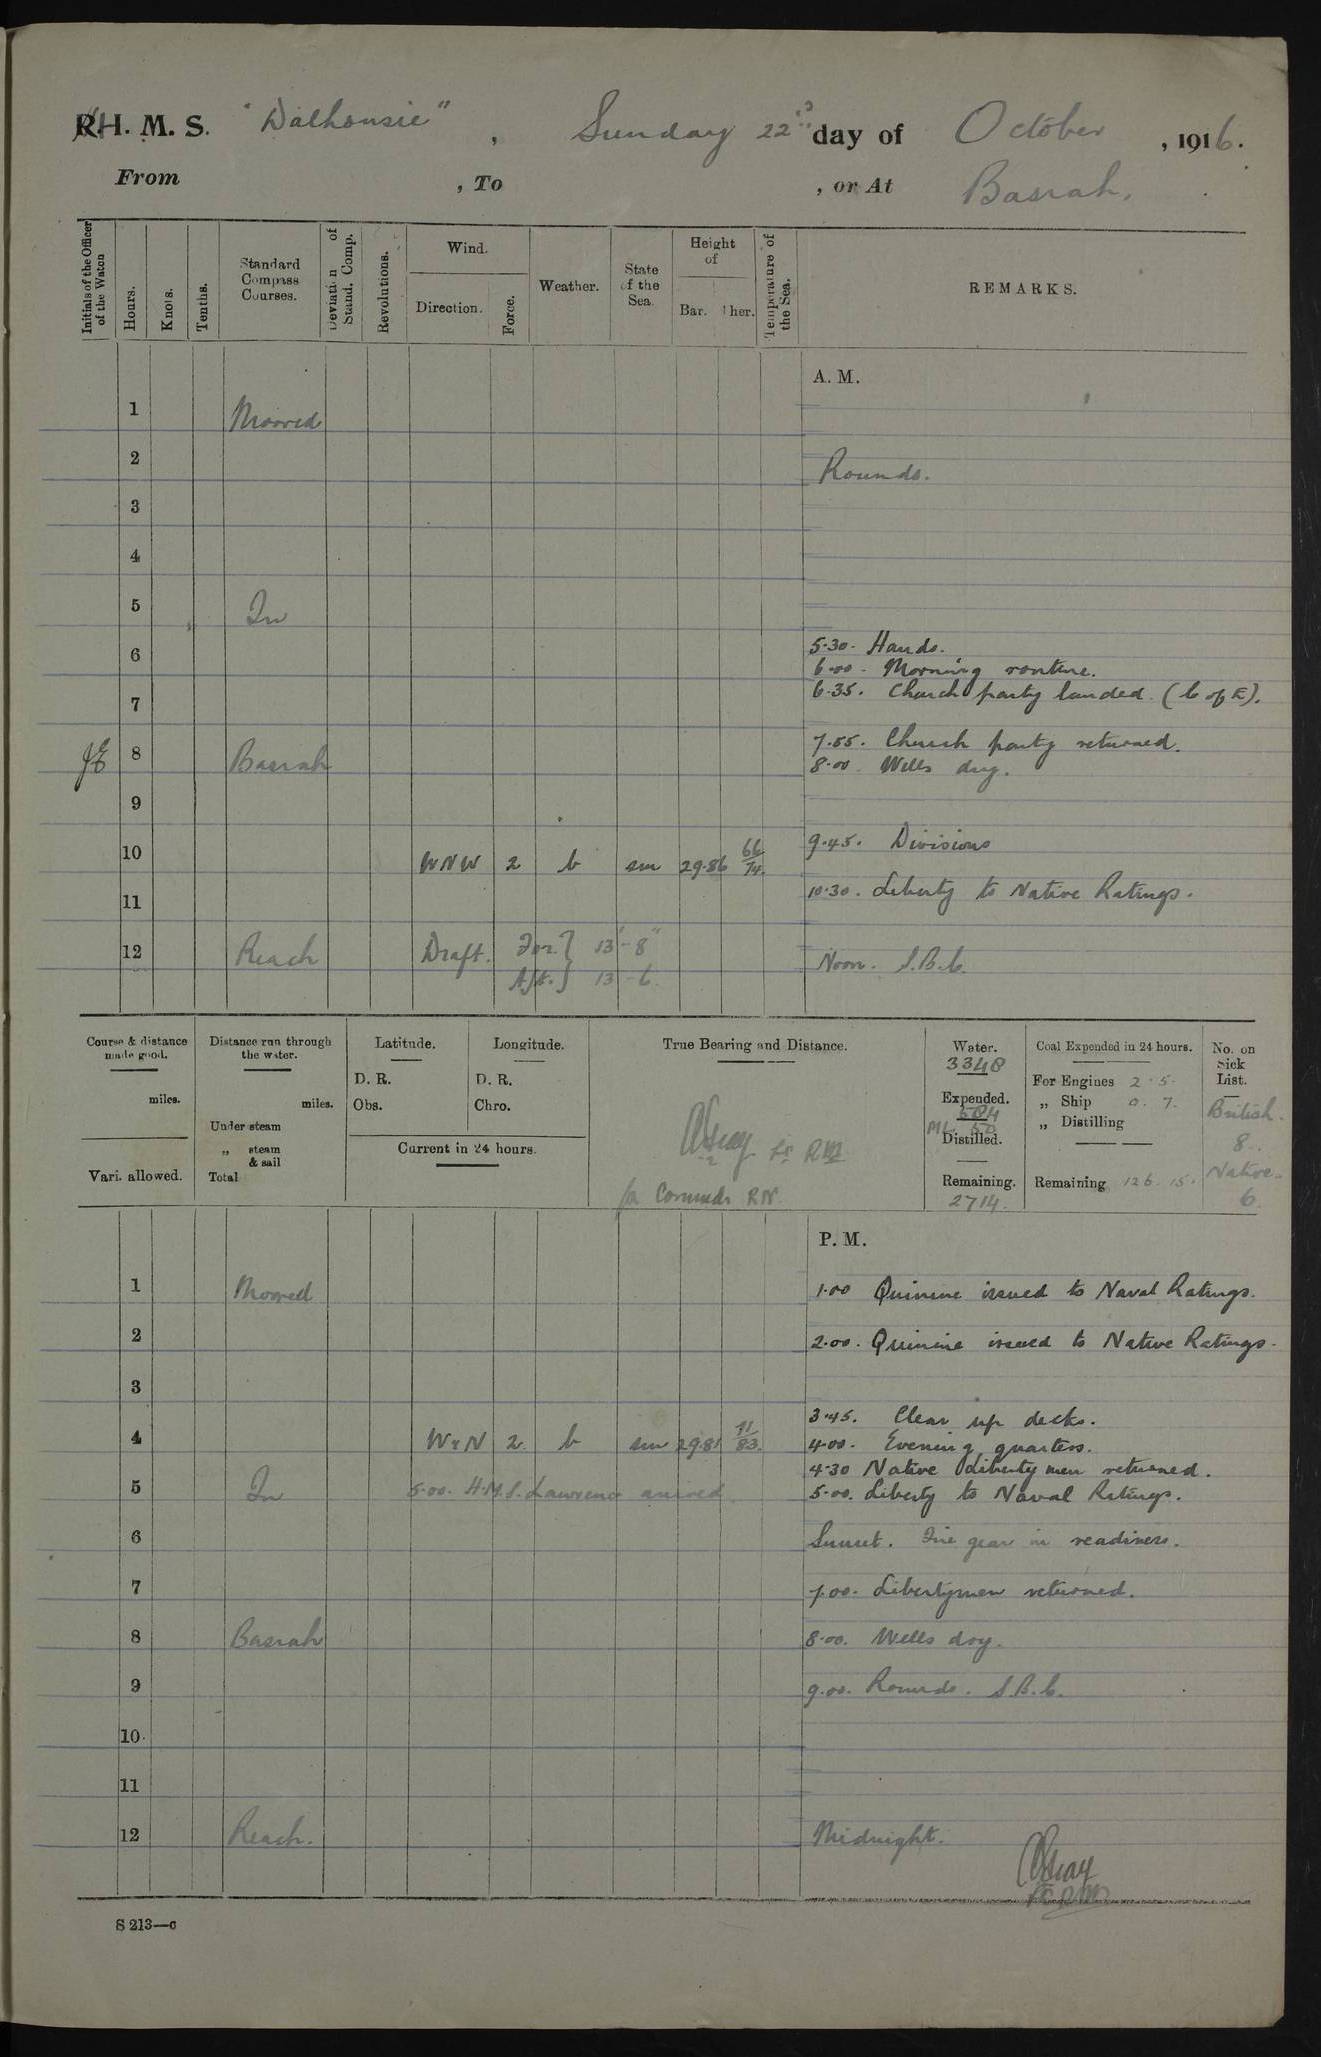 H. M. S. "Dalhousie", Sunday 22nd day of October, 1916.
From , To , or At Basrah.
Initials of the Officer of the Watch
Hours.
Knots.
Tenths.
Standard Compass Courses.
Deviation of Stand. Comp.
Revolutions.
Wind.
Direction.
Force.
Weather.
State of the Sea.
Height of
Bar. Ther.
Temperature of the Sea.
REMARKS.
A. M.
1 Moored
2 Rounds.
3
4
5 In
5.30. Hands.
6 6.00. Morning routine.
6.35. Church party landed (C of E).
7
7.55. Church party returned.
8 Basrah
8.00. Wells dry.
9
9.45. Divisions
10 WNW 2 b sm 29.86 66/74.
10.30. Liberty to Native Ratings.
11
12 Reach Draft. For. } 13'-8" Noon. S.B.C.
Aft. } 13-6.
Course & distance made good.
miles.
Vari. allowed.
Distance run through the water.
miles.
Under steam
„ steam & sail
Total
Latitude.
D. R.
Obs.
Longitude.
D. R.
Chro.
Current in 24 hours.
True Bearing and Distance.
Lt RIM
for Commdr RN.
Water.
3348
Expended.
584
ML. 50
Distilled.
Remaining.
2714.
Coal Expended in 24 hours.
For Engines 2.5.
„ Ship 0.7.
„ Distilling
Remaining 126.15.
No. on Sick List.
British.
8.
Native.
6.
P. M.
1 Moored 1.00 Quinine issued to Naval Ratings.
2 2.00. Quinine issued to Native Ratings.
3
3.45. Clear up decks.
4 WxN 2. b sm 29.81 71/83. 4.00. Evening quarters.
4.30 Native Liberty men returned.
5 In 5.00. H.M.S. Lawrence arrived 5.00. Liberty to Naval Ratings.
6 Sunset. Fire gear in readiness.
7 7.00. Libertymen returned.
8 Basrah 8.00. Wells dry.
9 9.00. Rounds. S.B.C.
10
11
12 Reach. Midnight.
S 213—c